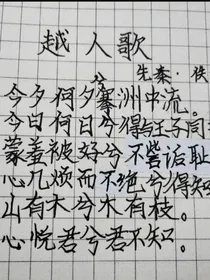 越人歌
先秦·佚
今夕何夕兮搴洲中流。
今日何日兮得与王子同
蒙羞被好兮不訾诟耻
心几烦而不绝兮得知
山有木兮木有枝。
心悦君兮君不知。